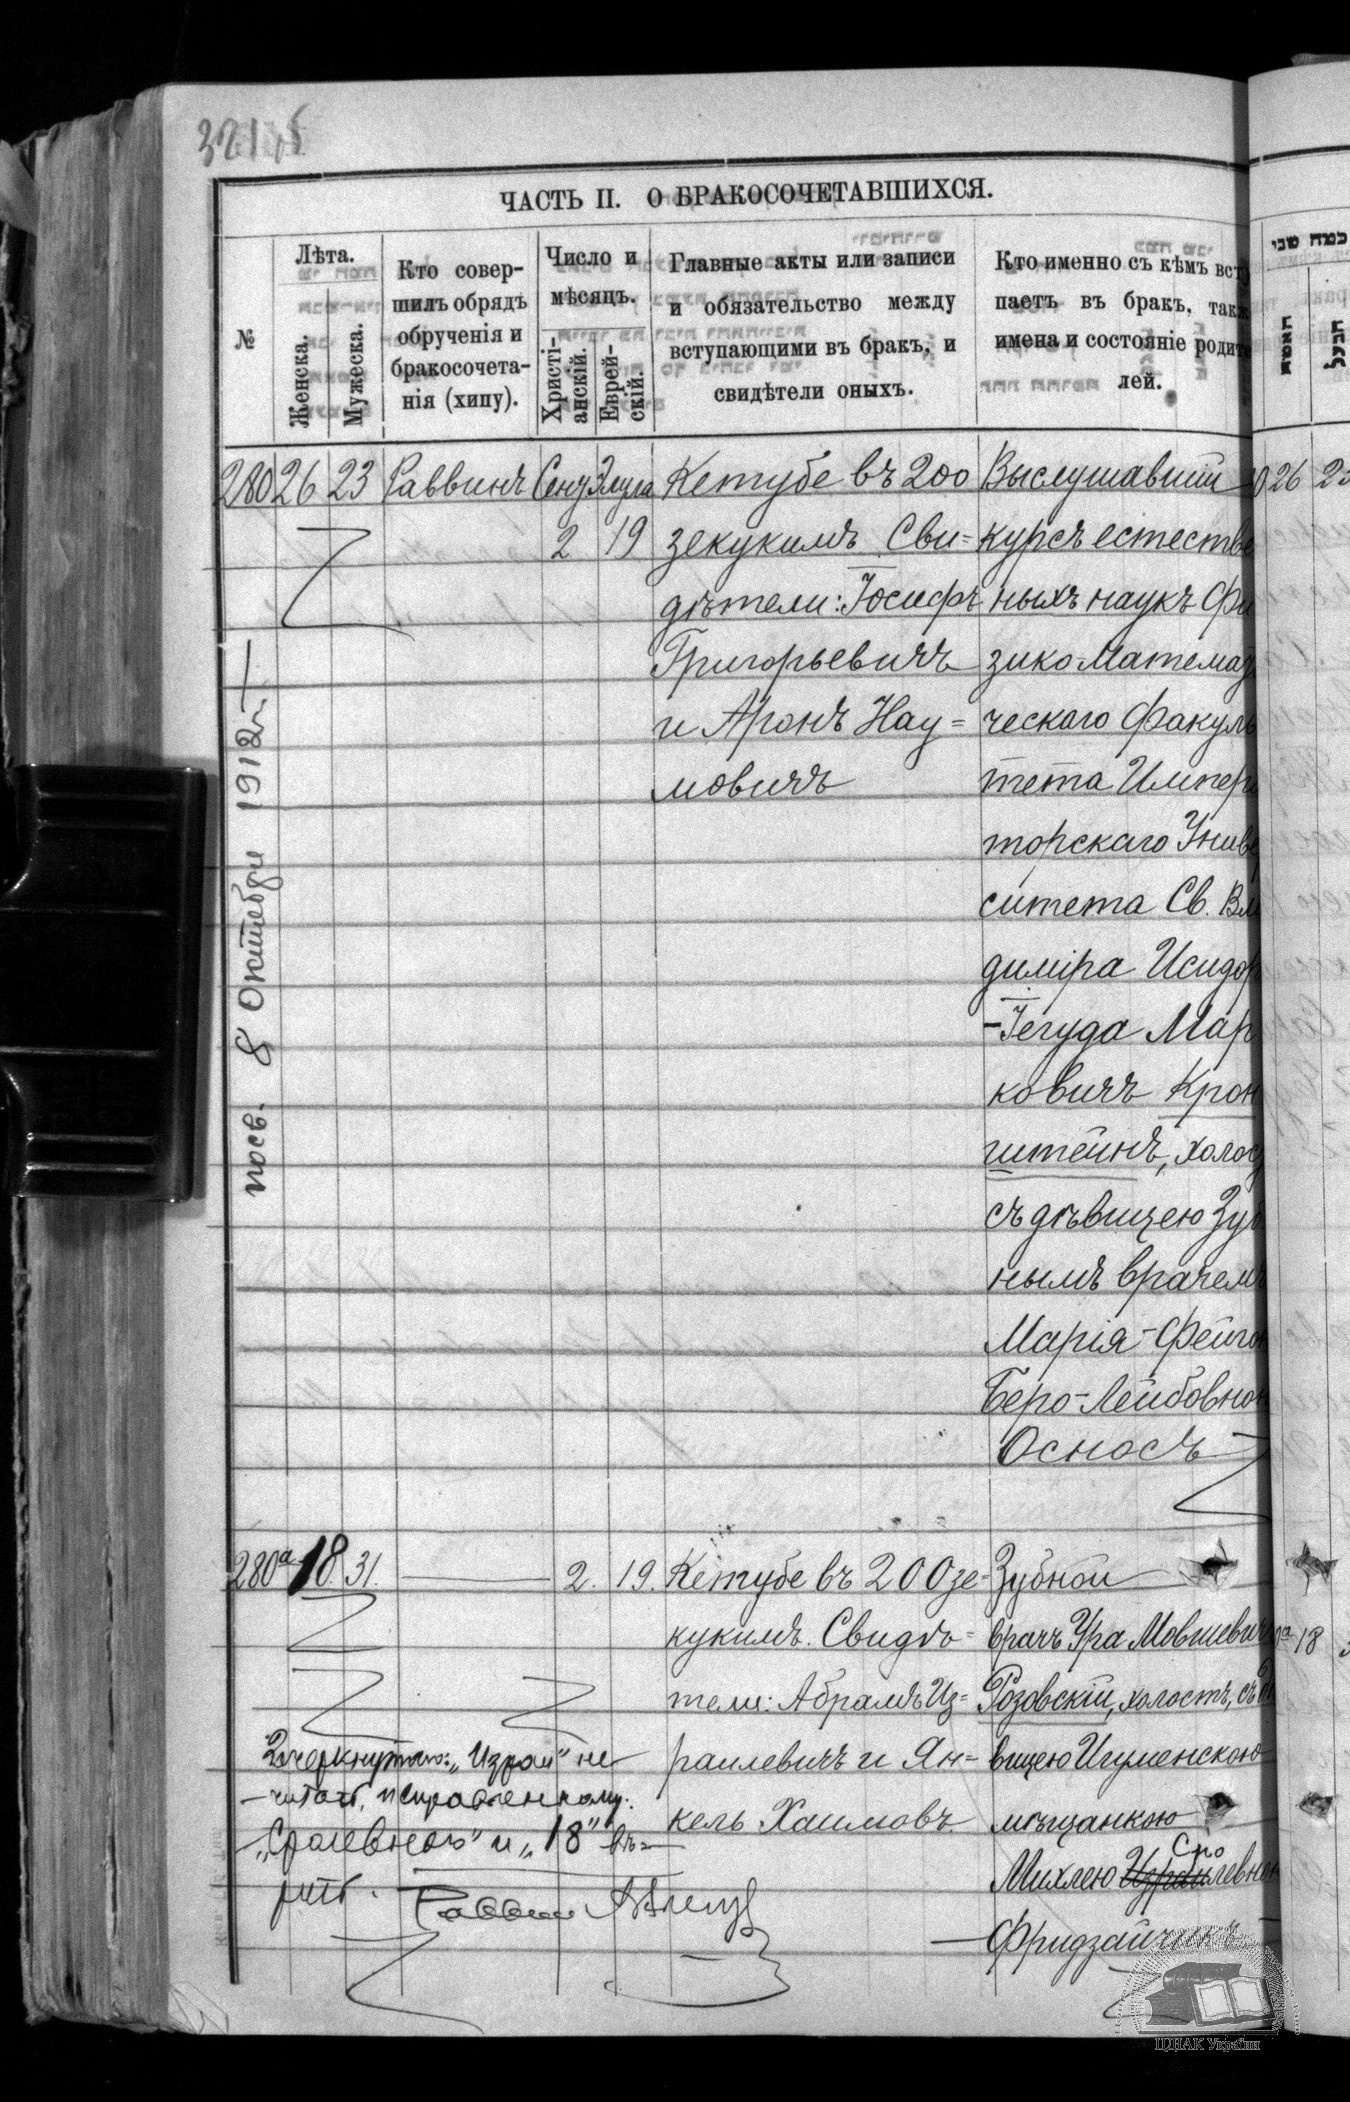 ЧАСТЬ II. О БРАКОСОЧЕТАВШИХСЯ.
№
Лѣта.
Женска.
Мужеска.
Кто совер-
шилъ обрядъ
обрученія и
бракосочета-
нія (хипу).
Число и
мѣсяцъ.
Христі-
анскій.
Еврей-
скій.
Главные акты или записи
и обязательство между
вступающими въ бракъ, и
свидѣтели оныхъ.
Кто именно съ кѣмъ всту
паетъ въ бракъ, такж
имена и состояніе родите
лей.
280 26 23 Раввинъ Сент Элула
2 19
Кетубе въ 200
зекукимъ Сви=
дѣтели: Іосифъ
Григорьевичъ
и Аронъ Нау=
мовичъ
Выслушавшій
курсъ естестве
ныхъ наукъ Фи
зико-Матема
ческаго Факуль
тета Импер
торскаго Униве
ситета Св. Вла
диміра Исидор
-Іегуда Мар
ковичъ Крон
штейнъ, холос
съ дѣвицею Зуб
нымъ врачемъ
Марія-Фейгою
Беро-Лейбовною
Осносъ
посв. 8 Октября 1912 г.
280а 18. 31. 2. 19.
Кетубе въ 200 зе-
кукимъ. Свидѣ=
тели: Абрамъ Из=
раилевичъ и Ян=
кель Хаимовъ
Зубной
врачъ Ура Мовшевичъ
Розовскій, холостъ, съ дѣ
вицею Игуменскою
мѣщанкою
Сро
Михлею Израилевною
Фридзайчикъ
Зачеркнутое: „Израи" не
читать, исправленному:
„Сролевною" и „18" вѣ=
рить.
Раввинъ
26 23
18
האשה
הבעל
ЦДІАК України